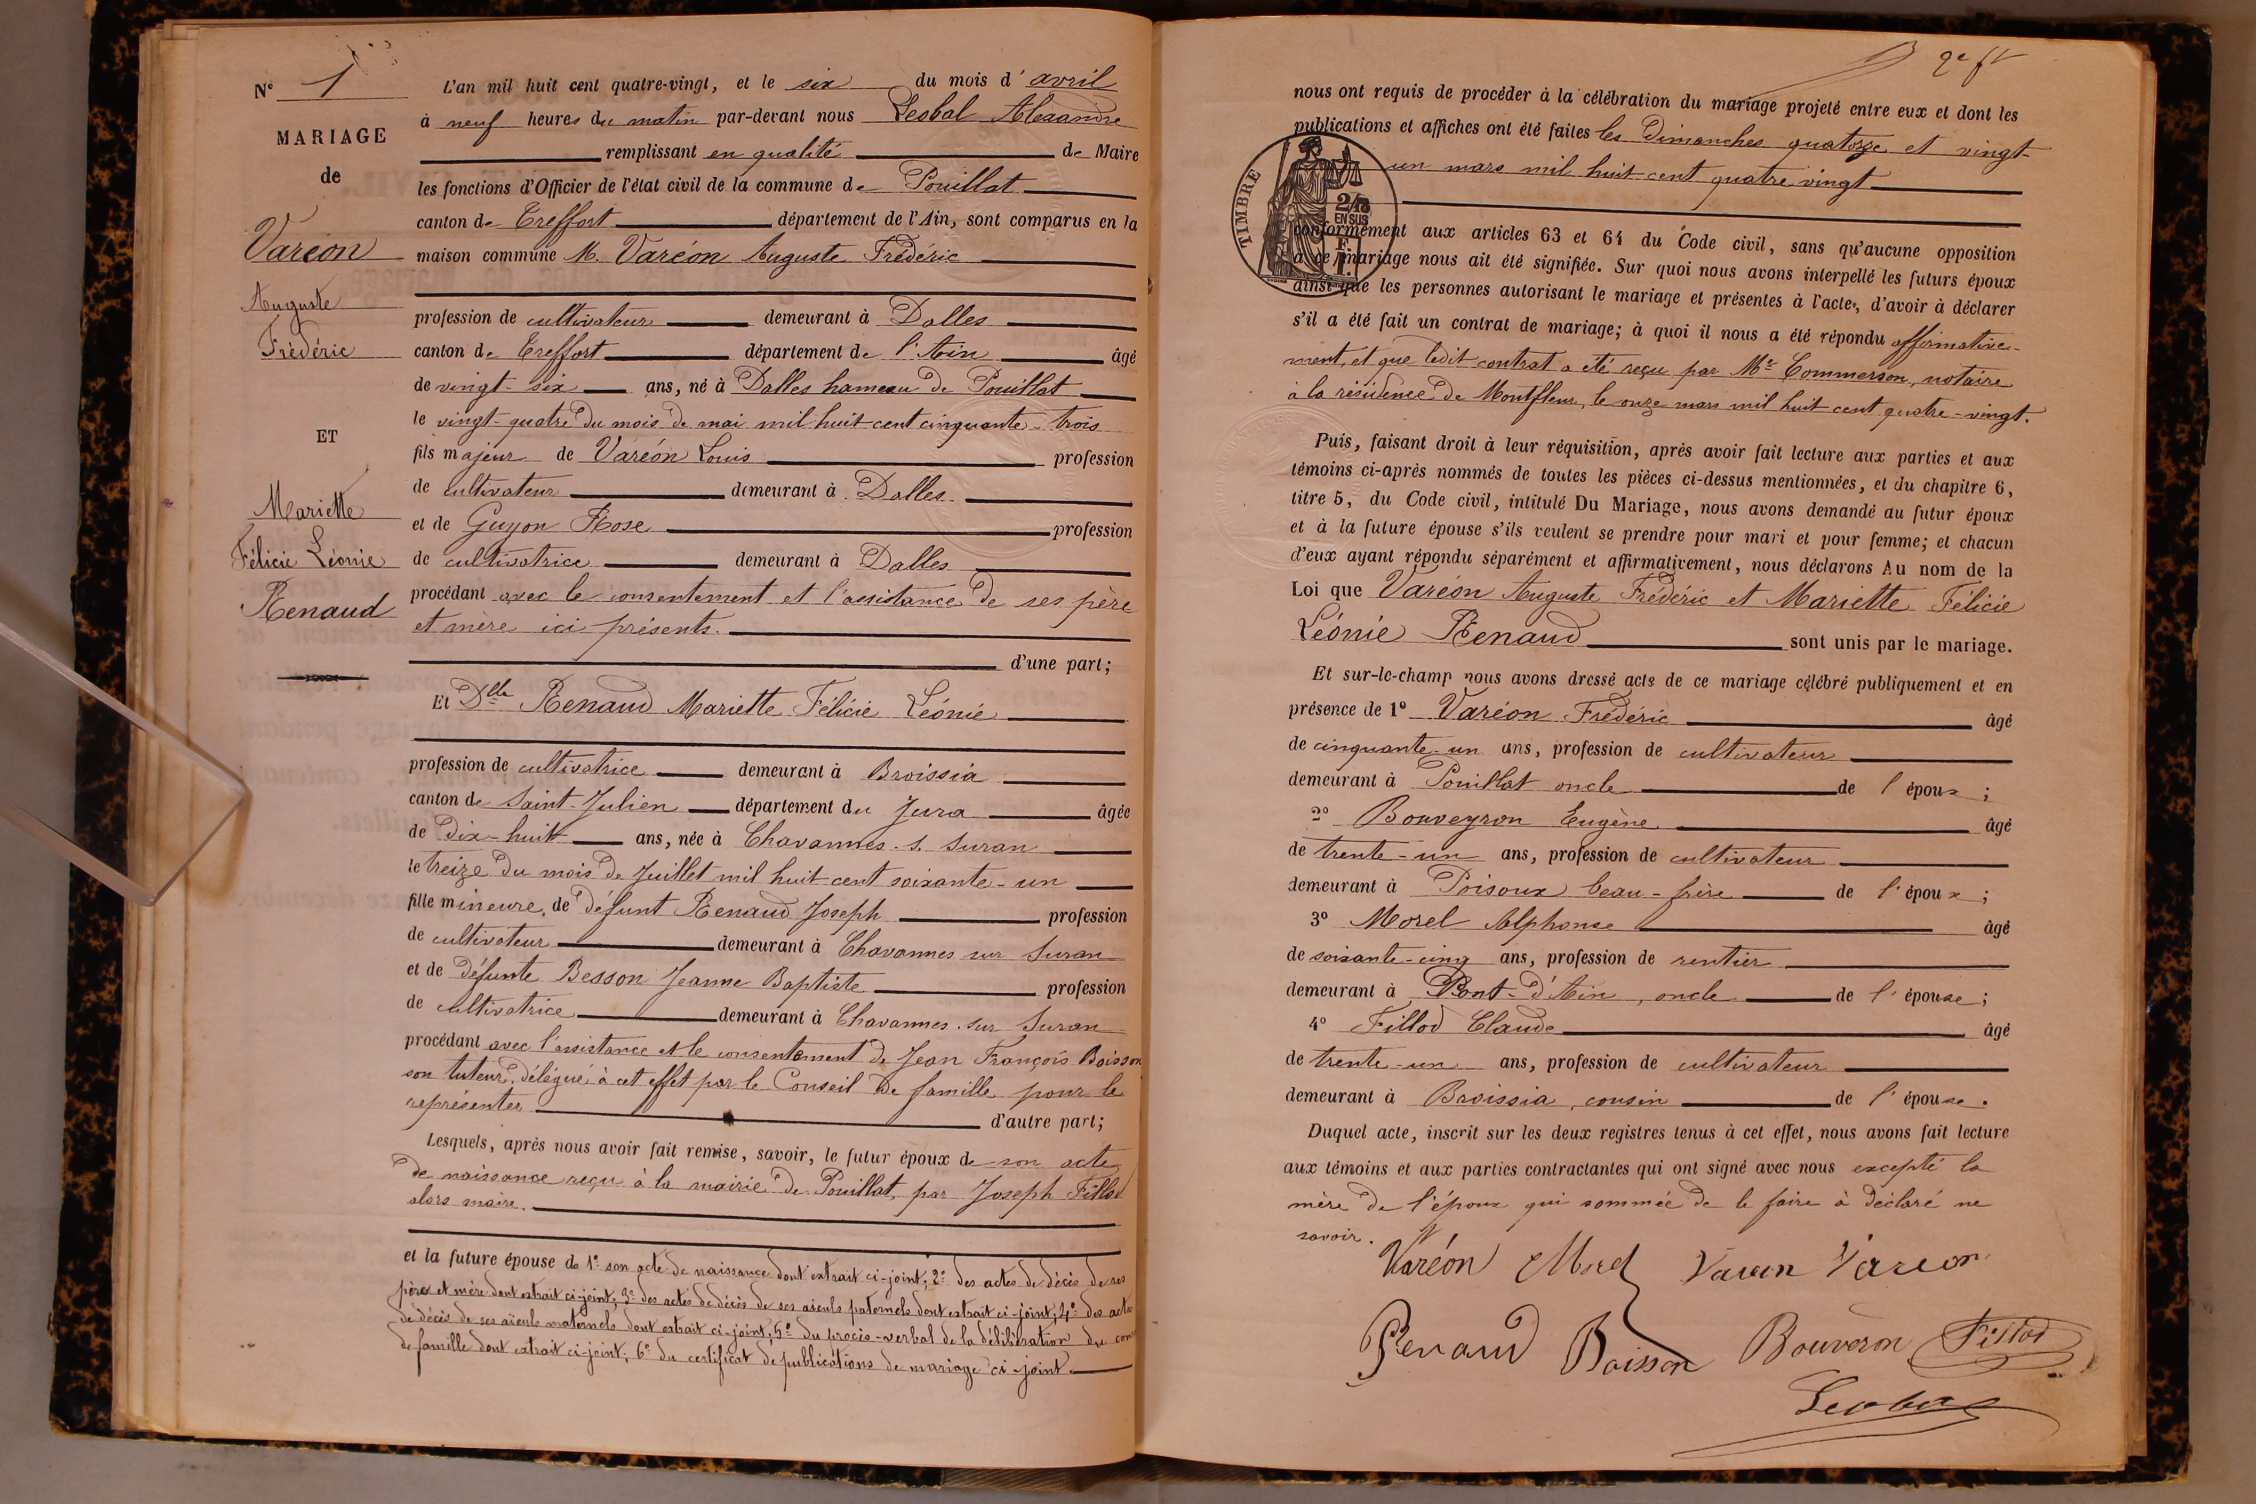 N° 1
MARIAGE
de
Varéon
Auguste
Frédéric
ET
Mariette
Félicie Léonie
Renaud
L'an mil huit cent quatre-vingt, et le six du mois d'avril
à neuf heures du matin par-devant nous Lesbal Alexandre
remplissant en qualité de Maire
les fonctions d'Officier de l'état civil de la commune de Pouillat
canton de Treffort département de l'Ain, sont comparus en la
maison commune M. Varéon Auguste Frédéric
profession de cultivateur demeurant à Dalles
canton de Treffort département de l'Ain âgé
de vingt-six ans, né à Dalles hameau de Pouillat
le vingt-quatre du mois de mai mil huit cent cinquante-trois
fils majeur de Varéon Louis profession
de cultivateur demeurant à Dalles
et de Guyon Rose profession
de cultivatrice demeurant à Dalles
procédant avec le consentement et l'assistance de ses père
et mère ici présents.
d'une part;
Et Dlle Renaud Mariette Félicie Léonie
profession de cultivatrice demeurant à Broissia
canton de Saint-Julien département du Jura âgée
de dix-huit ans, née à Chavannes s. Suran
le treize du mois de Juillet mil huit cent soixante-un
fille mineure de défunt Renaud Joseph profession
de cultivateur demeurant à Chavannes sur Suran
et de défunte Besson Jeanne Baptiste profession
de cultivatrice demeurant à Chavannes sur Suran
procédant avec l'assistance et le consentement de Jean François Boisson
son tuteur, délégué à cet effet par le Conseil de famille pour le
représenter
d'autre part;
Lesquels, après nous avoir fait remise, savoir, le futur époux de son acte
de naissance reçu à la mairie de Pouillat, par Joseph Fillod
alors maire.
et la future épouse de 1° son acte de naissance dont extrait ci-joint; 2° des actes de décès de ses
père et mère dont extrait ci-joint; 3° des actes de décès de ses aïeuls paternels dont extrait ci-joint; 4° des actes
de décès de ses aïeuls maternels dont extrait ci-joint; 5° du procès-verbal de la délibération du cons
de famille dont extrait ci-joint; 6° du certificat de publications de mariage ci-joint
2e ft
nous ont requis de procéder à la célébration du mariage projeté entre eux et dont les
publications et affiches ont été faites les dimanches quatorze et vingt-
un mars mil huit cent quatre vingt
TIMBRE
2/10
EN SUS
conformément aux articles 63 et 64 du Code civil, sans qu'aucune opposition
à ce mariage nous ait été signifiée. Sur quoi nous avons interpellé les futurs époux
ainsi que les personnes autorisant le mariage et présentes à l'acte, d'avoir à déclarer
s'il a été fait un contrat de mariage; à quoi il nous a été répondu affirmative-
ment, et que ledit contrat a été reçu par Me Commerson, notaire
à la résidence de Montfleur, le onze mars mil huit cent quatre-vingt.
Puis, faisant droit à leur réquisition, après avoir fait lecture aux parties et aux
témoins ci-après nommés de toutes les pièces ci-dessus mentionnées, et du chapitre 6,
titre 5, du Code civil, intitulé Du Mariage, nous avons demandé au futur époux
et à la future épouse s'ils veulent se prendre pour mari et pour femme; et chacun
d'eux ayant répondu séparément et affirmativement, nous déclarons Au nom de la
Loi que Varéon Auguste Frédéric et Mariette Félicie
Léonie Renaud sont unis par le mariage.
Et sur-le-champ nous avons dressé acte de ce mariage célébré publiquement et en
présence de 1° Varéon Frédéric âgé
de cinquante-un ans, profession de cultivateur
demeurant à Pouillat oncle de l'époux;
2° Bouveyron Eugène âgé
de trente-un ans, profession de cultivateur
demeurant à Poisoux beau-frère de l'époux;
3° Morel Alphonse âgé
de soixante-cinq ans, profession de rentier
demeurant à Pont-d'Ain, oncle de l'épouse;
4° Fillod Claude âgé
de trente-un ans, profession de cultivateur
demeurant à Broissia, cousin de l'épouse.
Duquel acte, inscrit sur les deux registres tenus à cet effet, nous avons fait lecture
aux témoins et aux parties contractantes qui ont signé avec nous excepté la
mère de l'époux qui sommée de le faire à déclaré ne
savoir.
Varéon Morel Varéon
Renaud Boisson Bouveron Fillod